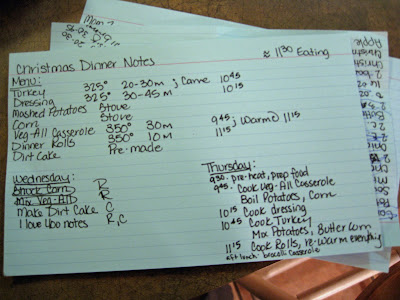 Christmas Dinner Notes
≈ 1130 Eating
Menu:
Turkey 325° 20-30m ; Carve 10 45
Dressing 325° 30-45m 10 15
Mashed Potatoes Stove
Corn Stove
Veg-All Casserole 350° 30m 9 45 ; warm@ 11 15
Dinner Rolls 350° 10m 11 15
Dirt Cake Pre-made
Wednesday:
Shuck Corn D
Mix Veg-All R
Make Dirt Cake C
I love you notes R, C
Thursday:
9 30 - pre-heat, prep food
9 45 Cook Veg-All Casserole
Boil Potatoes, Corn
10 15 Cook dressing
10 45 Cook Turkey
Mix Potatoes, Butter Corn
11 15 Cook Rolls, re-warm everything
Aft lunch - broccoli Casserole